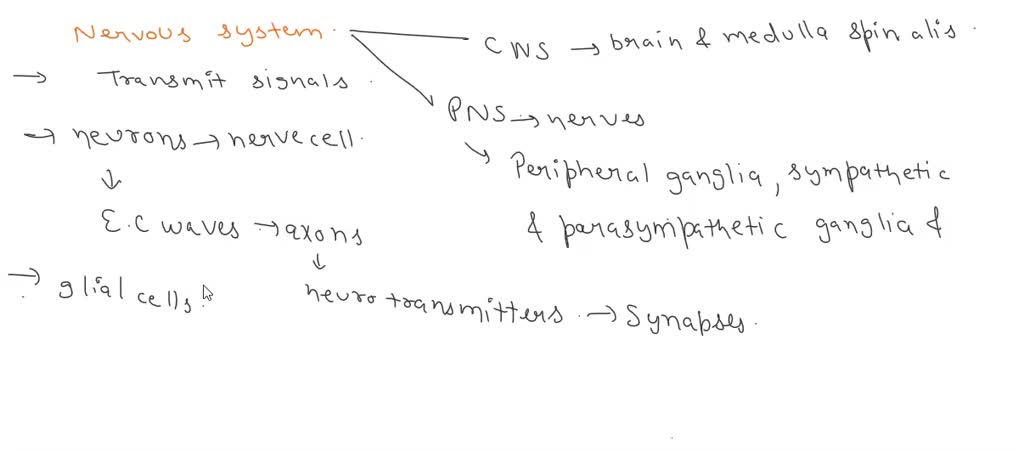 Nervous system.
CNS → brain & medulla spinalis.
→ Transmit signals.
PNS → nerves
→ neurons → nerve cell.
Peripheral ganglia, sympathetic
E.C waves → axons
& parasympathetic ganglia &
→ glial cells.
neurotransmitters. → Synapses.